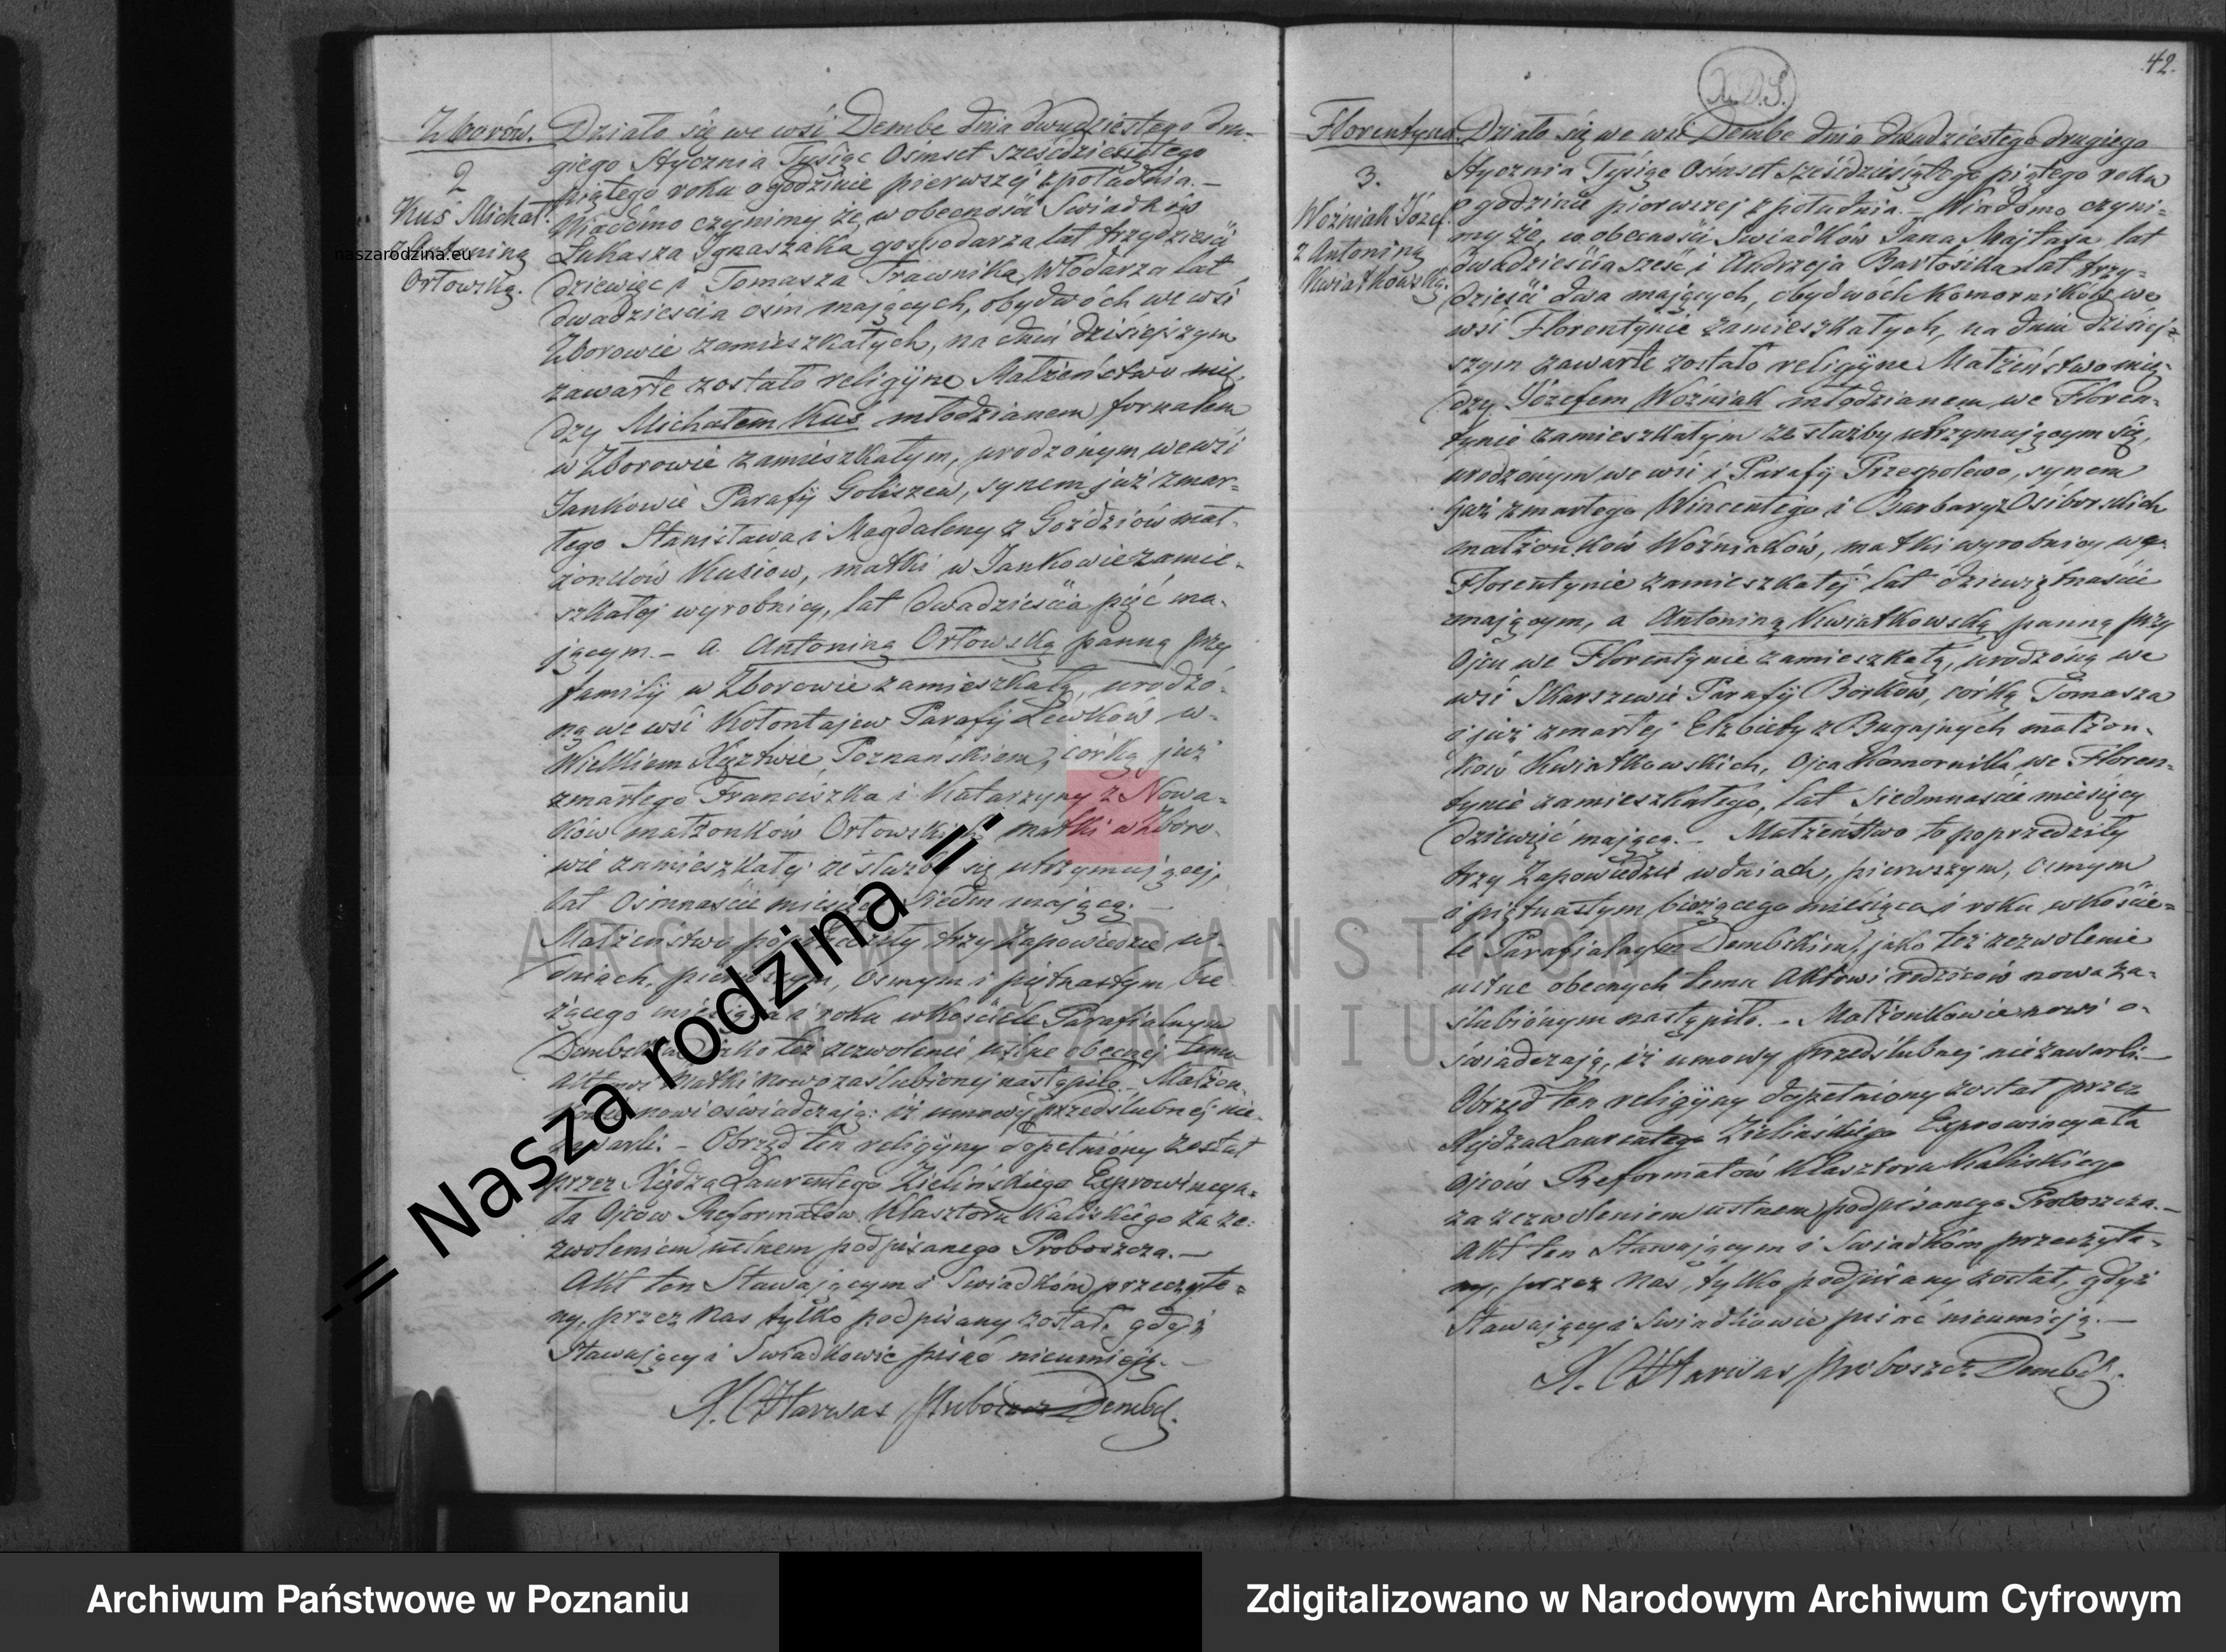 Zborów.
2
Kuś Michał
z Antoniną
Orłowską.
naszarodzina.eu
Działo się we wsi Dembe dnia dwudziestego dru-
giego Stycznia Tysiąc Ośmset sześćdziesiątego
piątego roku o godzinie pierwszej z południa. –
Wiadomo czynimy że, w obecności Świadków
Łukasza Ignaszaka gospodarza lat trzydzieści
dziewięć i Tomasza Trawnika, Włodarza lat
dwadzieścia ośm mających, obydwóch we wsi
Zborowie zamieszkałych, na dniu dzisiejszym
zawarte zostało religijne Małżeństwo mię-
dzy Michałem Kuś młodzianem fornalem
w Zborowie zamieszkałym, urodzonym we wsi
Jankowie Parafij Goliszew, synem już zmar=
łego Stanisława i Magdaleny z Goździów mał-
żonków Kusiów, matki w Jankowie zamie-
szkałej wyrobnicy, lat dwadzieścia pięć ma-
jącym. – a Antoniną Orłowską panną przy
familij w Zborowie zamieszkałą, urodzo-
ną we wsi Kołontajew Parafij Lewków w-
Wielkiem Xięztwie Poznańskiem, córką już
zmarłego Franciszka i Katarzyny z Nowa-
ków małżonków Orłowskich matki w Zboro-
wie zamieszkałej ze służby się utrzymującej,
lat Ośmnaście miesięcy siedm mającą. –
Małżeństwo poprzedziły trzy Zapowiedzie w-
dniach, pierwszym, ósmym i piętnastym bie
żącego miesiąca i roku w Kościele Parafialnym
Dembskim jako też zezwolenie ustne obecnej temu
Aktowi Matki nowozaślubionej nastąpiło. Małżon-
kowie nowi oświadczają: iż umowy przedślubnej nie-
zawarli. – Obrząd ten religijny dopełniony został
przez Xiędza Laurentego Zielińskiego Exprowincya-
ła Ojców Reformatów Klasztoru Kaliskiego za ze-
zwoleniem ustnem podpisanego Proboszcza. –
Akt ten Stawającym i Świadkom przeczyta=
ny, przez Nas tylko podpisany został, gdyż
Stawający i Świadkowie pisać nieumieją. –
Proboszcz Dembs.
42.
Florentyna.
3.
Woźniak Józef
z Antoniną
Kwiatkowską.
Działo się we wsi Dembe dnia dwudziestego drugiego
Stycznia Tysiąc Ośmset sześćdziesiątego piątego roku
o godzinie pierwszej z południa. – Wiadomo czyni=
my że, w obecności Świadków Jana Majtasa lat
dwadzieścia sześć i Andrzeja Bartosika lat trzy=
dzieści dwa mających, obydwóch Komorników we
wsi Florentynie zamieszkałych, na dniu dzisiej=
szym zawarte zostało religijne Małżeństwo mię-
dzy Józefem Woźniak młodzianem we Floren-
tynie zamieszkałym ze służby utrzymującym się,
urodzonym we wsi i Parafij Przespolewo, synem
już zmarłego Wincentego i Barbary z Osiborskich
małżonków Woźniaków, matki wyrobnicy we
Florentynie zamieszkałej lat dziewiętnaście
mającym, a Antoniną Kwiatkowską panną przy
Ojcu we Florentynie zamieszkałą, urodzoną we
wsi Skarszewie Parafij Borków, córką Tomasza
i już zmarłej Elżbiety z Bugajnych małżon-
ków Kwiatkowskich, Ojca Komornika we Floren-
tynie zamieszkałego, lat siedmnaście miesięcy
dziewięć mającą. – Małżeństwo to poprzedziły
trzy Zapowiedzie w dniach, pierwszym, ósmym
i piętnastym bieżącego miesiąca i roku w Koście=
le Parafialnym Dembskim, jako też zezwolenie
ustne obecnych temu Aktowi rodziców nowoza-
ślubionym nastąpiło. – Małżonkowie nowi o-
świadczają, iż umowy przedślubnej niezawarli. –
Obrząd ten religijny dopełniony został przez
Xiędza Laurentego Zielińskiego Exprowincyała
Ojców Reformatów Klasztoru Kaliskiego
za zezwoleniem ustnem podpisanego Proboszcza. –
Akt ten Stawającym i Świadkom przeczyta-
ny, przez Nas, tylko podpisany został, gdyż
Stawający i Świadkowie pisać nieumieją. –
Proboszcz Dembs.
ARCHIWUM PAŃSTWOWE
W POZNANIU
-= Nasza rodzina =-
Archiwum Państwowe w Poznaniu
Zdigitalizowano w Narodowym Archiwum Cyfrowym